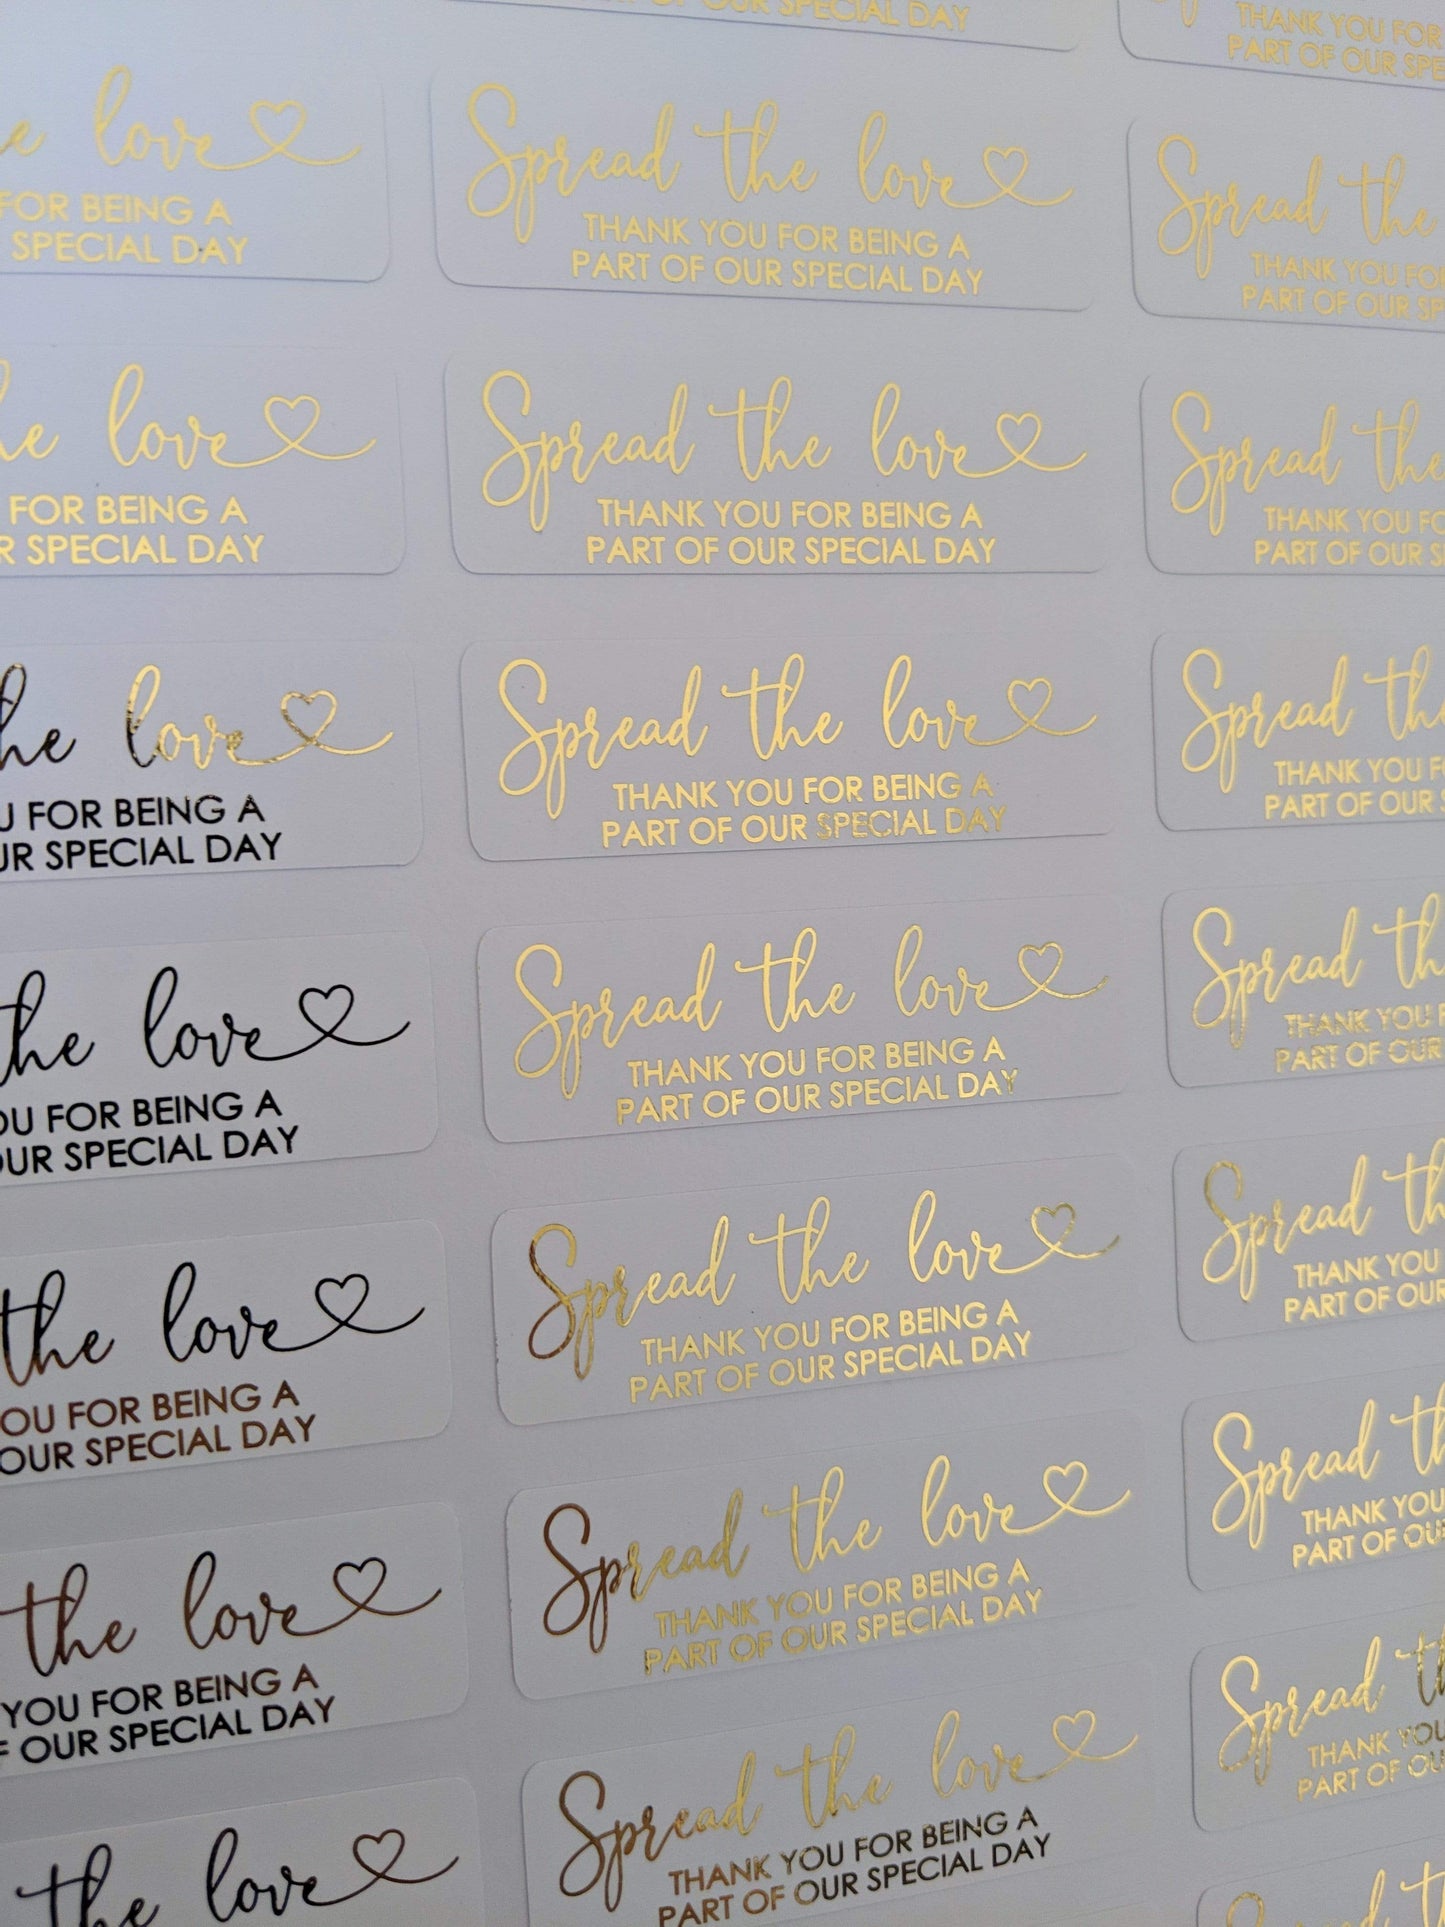 OF OUR SPECIAL DAY
THANK YOU FOR
PART OF OUR SPE
the love
FOR BEING A
SPECIAL DAY
Spread the love
THANK YOU FOR BEING A
PART OF OUR SPECIAL DAY
Spread the
THANK YOU FO
PART OF OUR SP
he love
FOR BEING A
R SPECIAL DAY
Spread the love
THANK YOU FOR BEING A
PART OF OUR SPECIAL DAY
Spread the
THANK YOU FO
PART OF OUR S
he love
U FOR BEING A
UR SPECIAL DAY
Spread the love
THANK YOU FOR BEING A
PART OF OUR SPECIAL DAY
Spread th
THANK YOU F
PART OF OUR S
the love
OU FOR BEING A
OUR SPECIAL DAY
Spread the love
THANK YOU FOR BEING A
PART OF OUR SPECIAL DAY
Spread th
THANK YOU F
PART OF OUR
the love
YOU FOR BEING A
OUR SPECIAL DAY
Spread the love
THANK YOU FOR BEING A
PART OF OUR SPECIAL DAY
Spread th
THANK YOU
PART OF OUR
the love
YOU FOR BEING A
F OUR SPECIAL DAY
Spread the love
THANK YOU FOR BEING A
PART OF OUR SPECIAL DAY
Spread th
THANK YOU
PART OF OU
the love
Spread the love
THANK YOU FOR BEING A
PART OF OUR SPECIAL DAY
Spread th
THANK YOU
PART OF OU